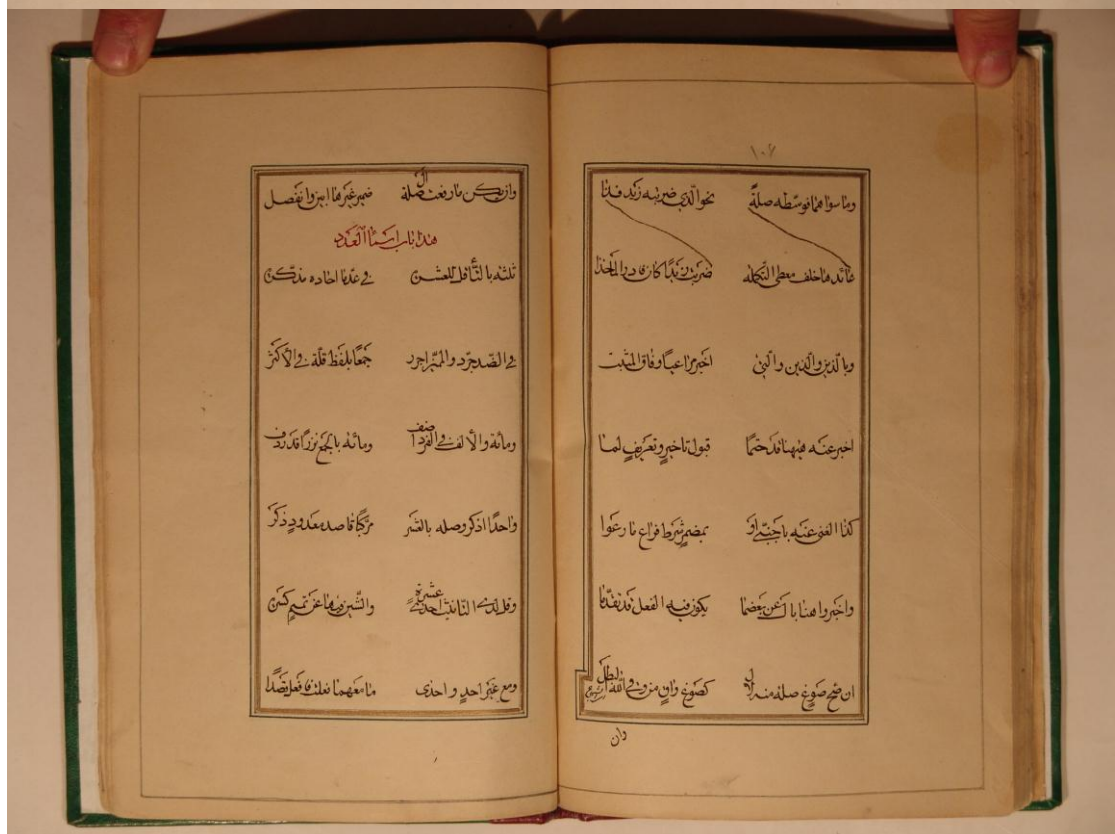 ١٠٦
وما سواهما فوسطه صلة نحو الذي ضربته زيد فذا
عائدها خلف معطى التكمله ضربت زيدا كان فادر الماخذا
وبالذين والذين والتي اخبر مراعيا وفاق المثبت
اخبر عنه هيهنا قد حتما قبول تاخير وتعريف لما
كذا الغنى عنه باجنبي او بمضمر شرط فراع ما رعوا
واخبروا هنا بال عن بعض ما يكون فيه الفعل قد تقدما
ان صح صوغ صلة منه لال كصوغ واق من وقى الله البطل
وان
وان يكن ما رفعت صلة ال ضمير غيرها ابين وانفصل
هذا باب اسماء العدد
ثلثه بالتاء قل للعشره في عد ما احاده مذكره
في الضد جرد والمميز اجرر جمعا بلفظ قلة في الاكثر
ومائة والالف للفرد اضف ومائة بالجمع نزرا قد ردف
واحدا اذكر وصله بالعشر مركبا قاصد معدود ذكر
وقل لدى التانيث احدى عشره والشين فيها عن تميم كسره
ومع غير احد واحدى ما معهما فعلت فافعل قصدا